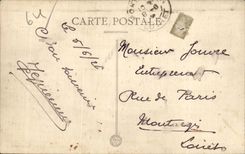 CARTE POSTALE
Le 5/6/26
Bon souvenir
Monsieur Jouvre
Entrepreneur
Rue de Paris
Montargis
Loiret